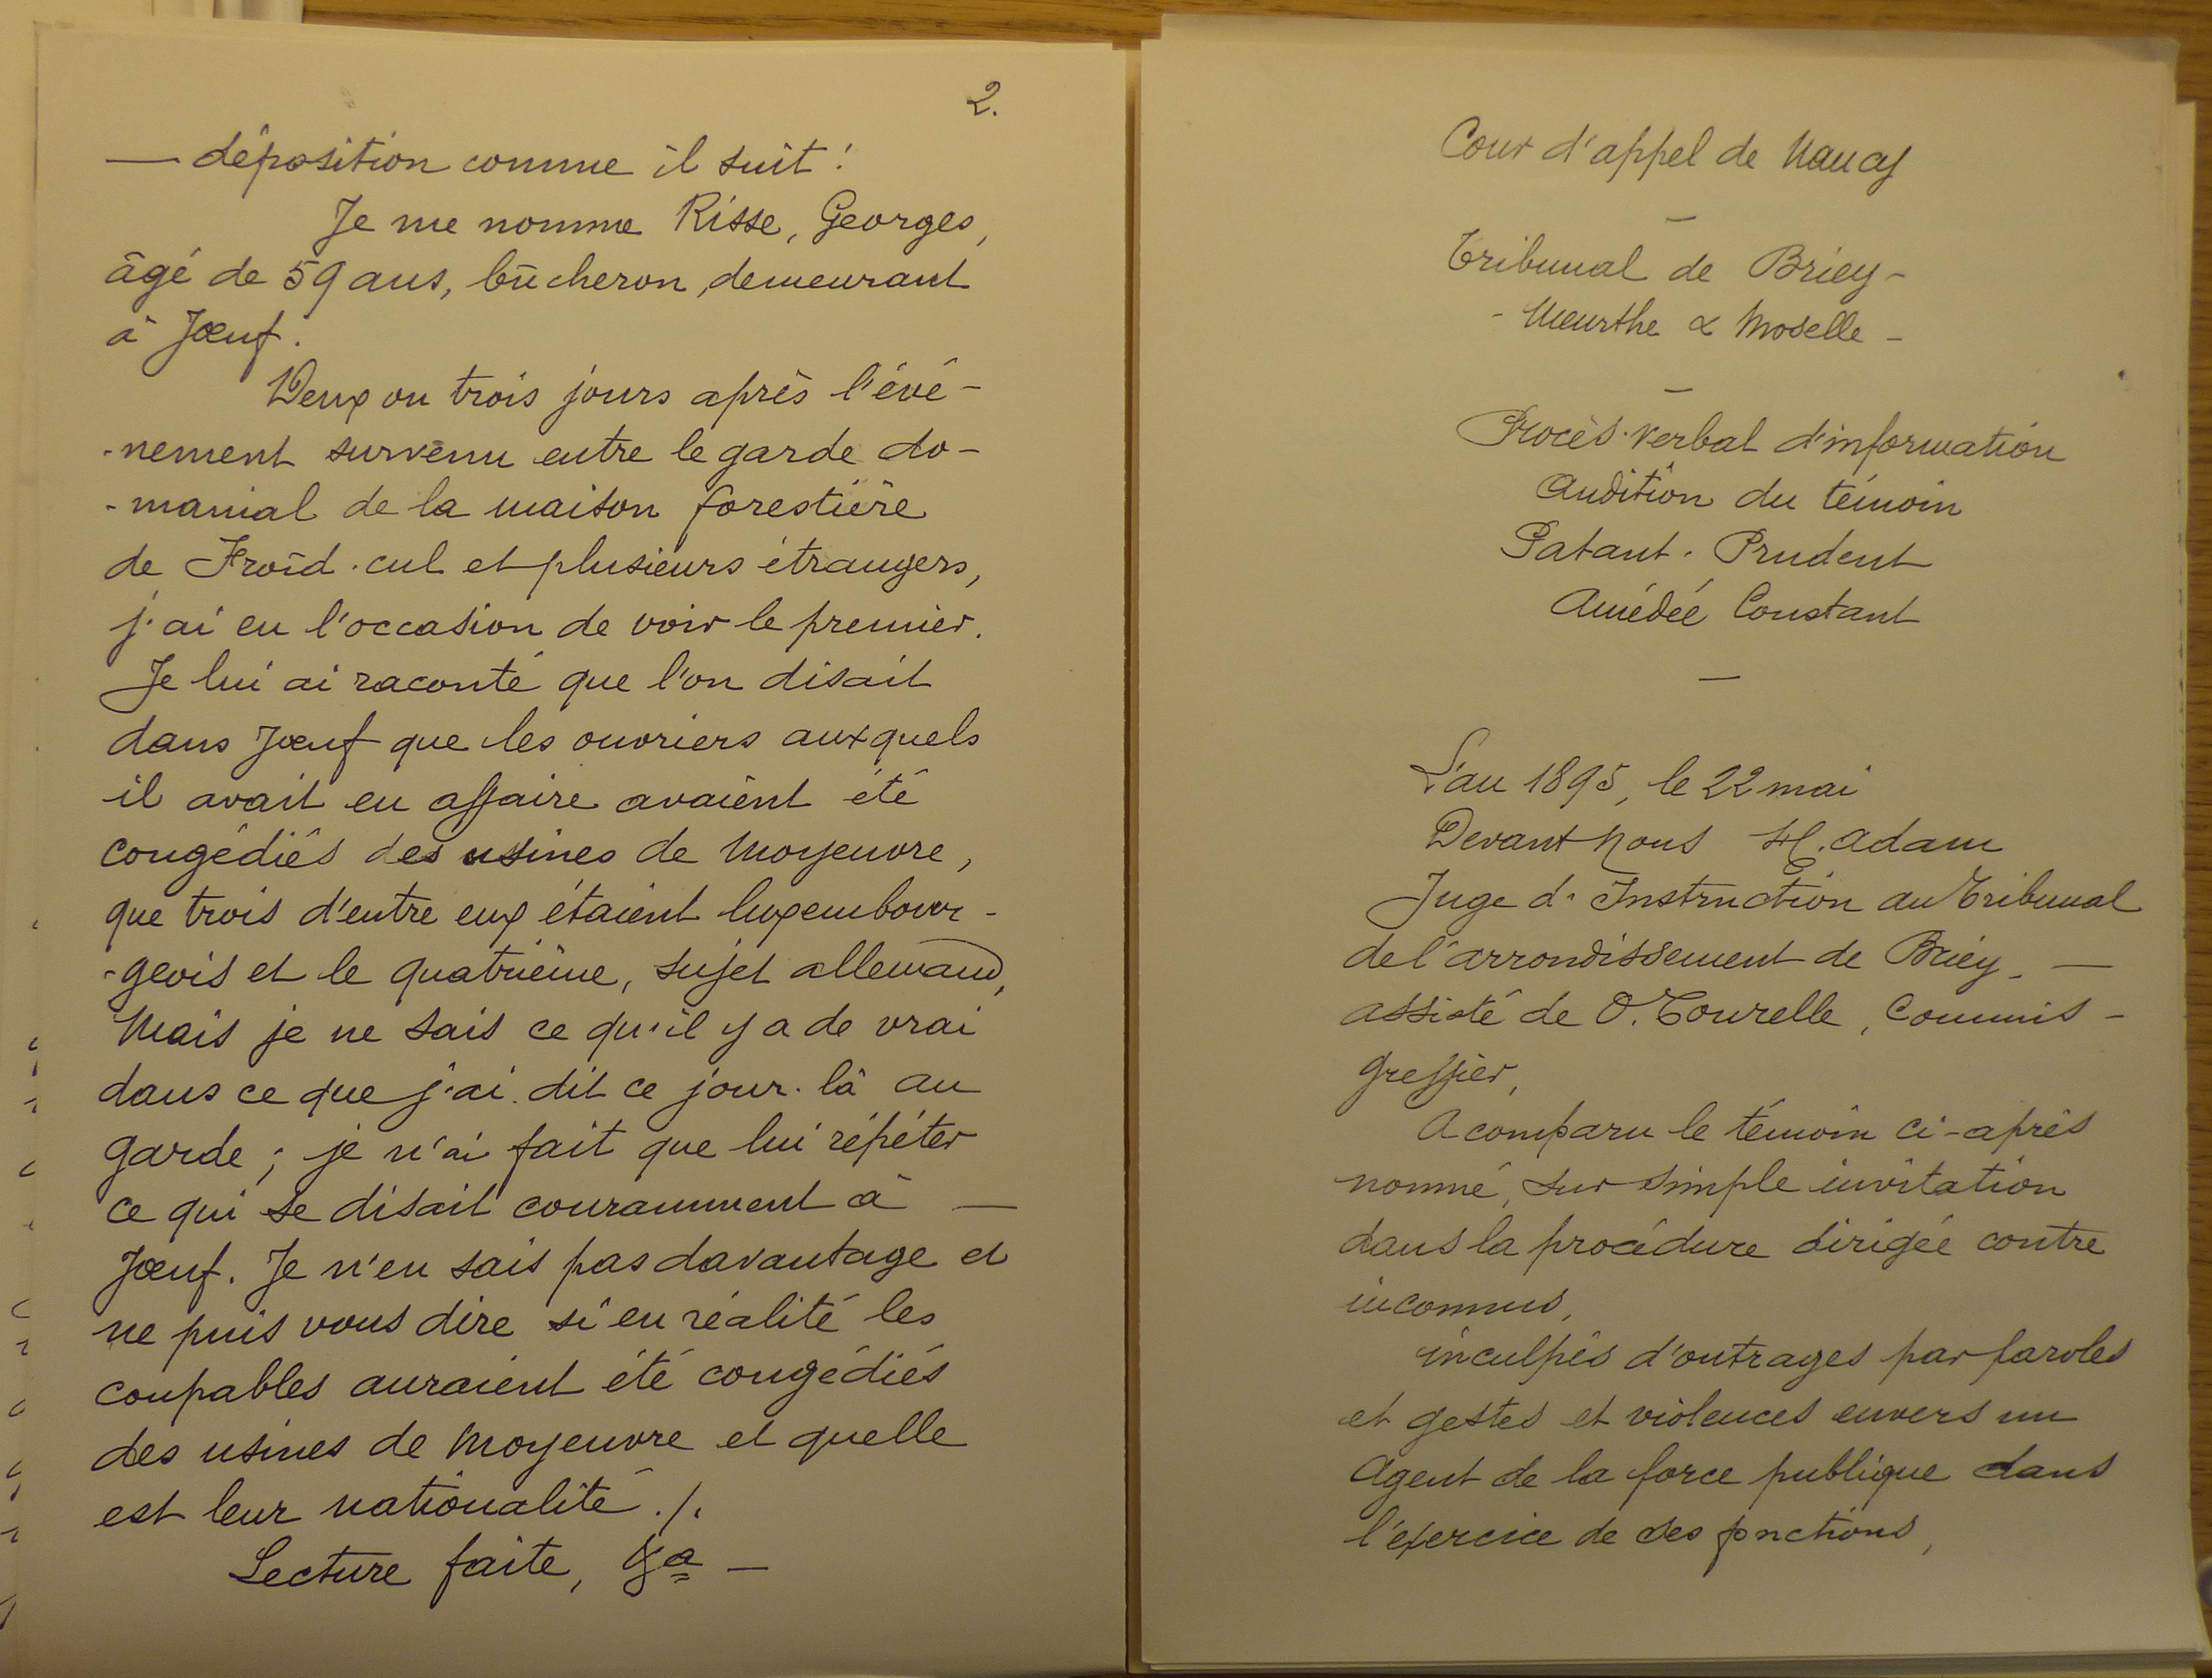 2.
— déposition comme il suit :
Je me nomme Risse, Georges,
âgé de 59 ans, bûcheron, demeurant
à Jœuf.
Deux ou trois jours après l'évé-
-nement survenu entre le garde do-
-manial de la maison forestière
de Froid-cul et plusieurs étrangers,
j'ai eu l'occasion de voir le premier.
Je lui ai raconté que l'on disait
dans Jœuf que les ouvriers auxquels
il avait eu affaire avaient été
congédiés des usines de Moyeuvre,
que trois d'entre eux étaient luxembour-
-geois et le quatrième, sujet allemand,
Mais je ne sais ce qu'il y a de vrai
dans ce que j'ai dit ce jour-là au
garde ; je n'ai fait que lui répéter
ce qui se disait couramment à —
Jœuf. Je n'en sais pas davantage et
ne puis vous dire si en réalité les
coupables auraient été congédiés
des usines de Moyeuvre et quelle
est leur nationalité ./.
Lecture faite, —
Cour d'appel de Nancy
—
Tribunal de Briey -
- Meurthe & Moselle -
—
Procès-verbal d'information
Audition du témoin
Patant. Prudent
Amédée Constant
—
L'an 1895, le 22 mai
Devant Nous H. Adam
Juge d'Instruction au Tribunal
de l'arrondissement de Briey. —
assisté de O. Tourelle, Commis -
Greffier,
A comparu le témoin ci-après
nommé, sur simple invitation
dans la procédure dirigée contre
inconnus,
inculpés d'outrages par paroles
et gestes et violences envers un
Agent de la force publique dans
l'exercice de ses fonctions,